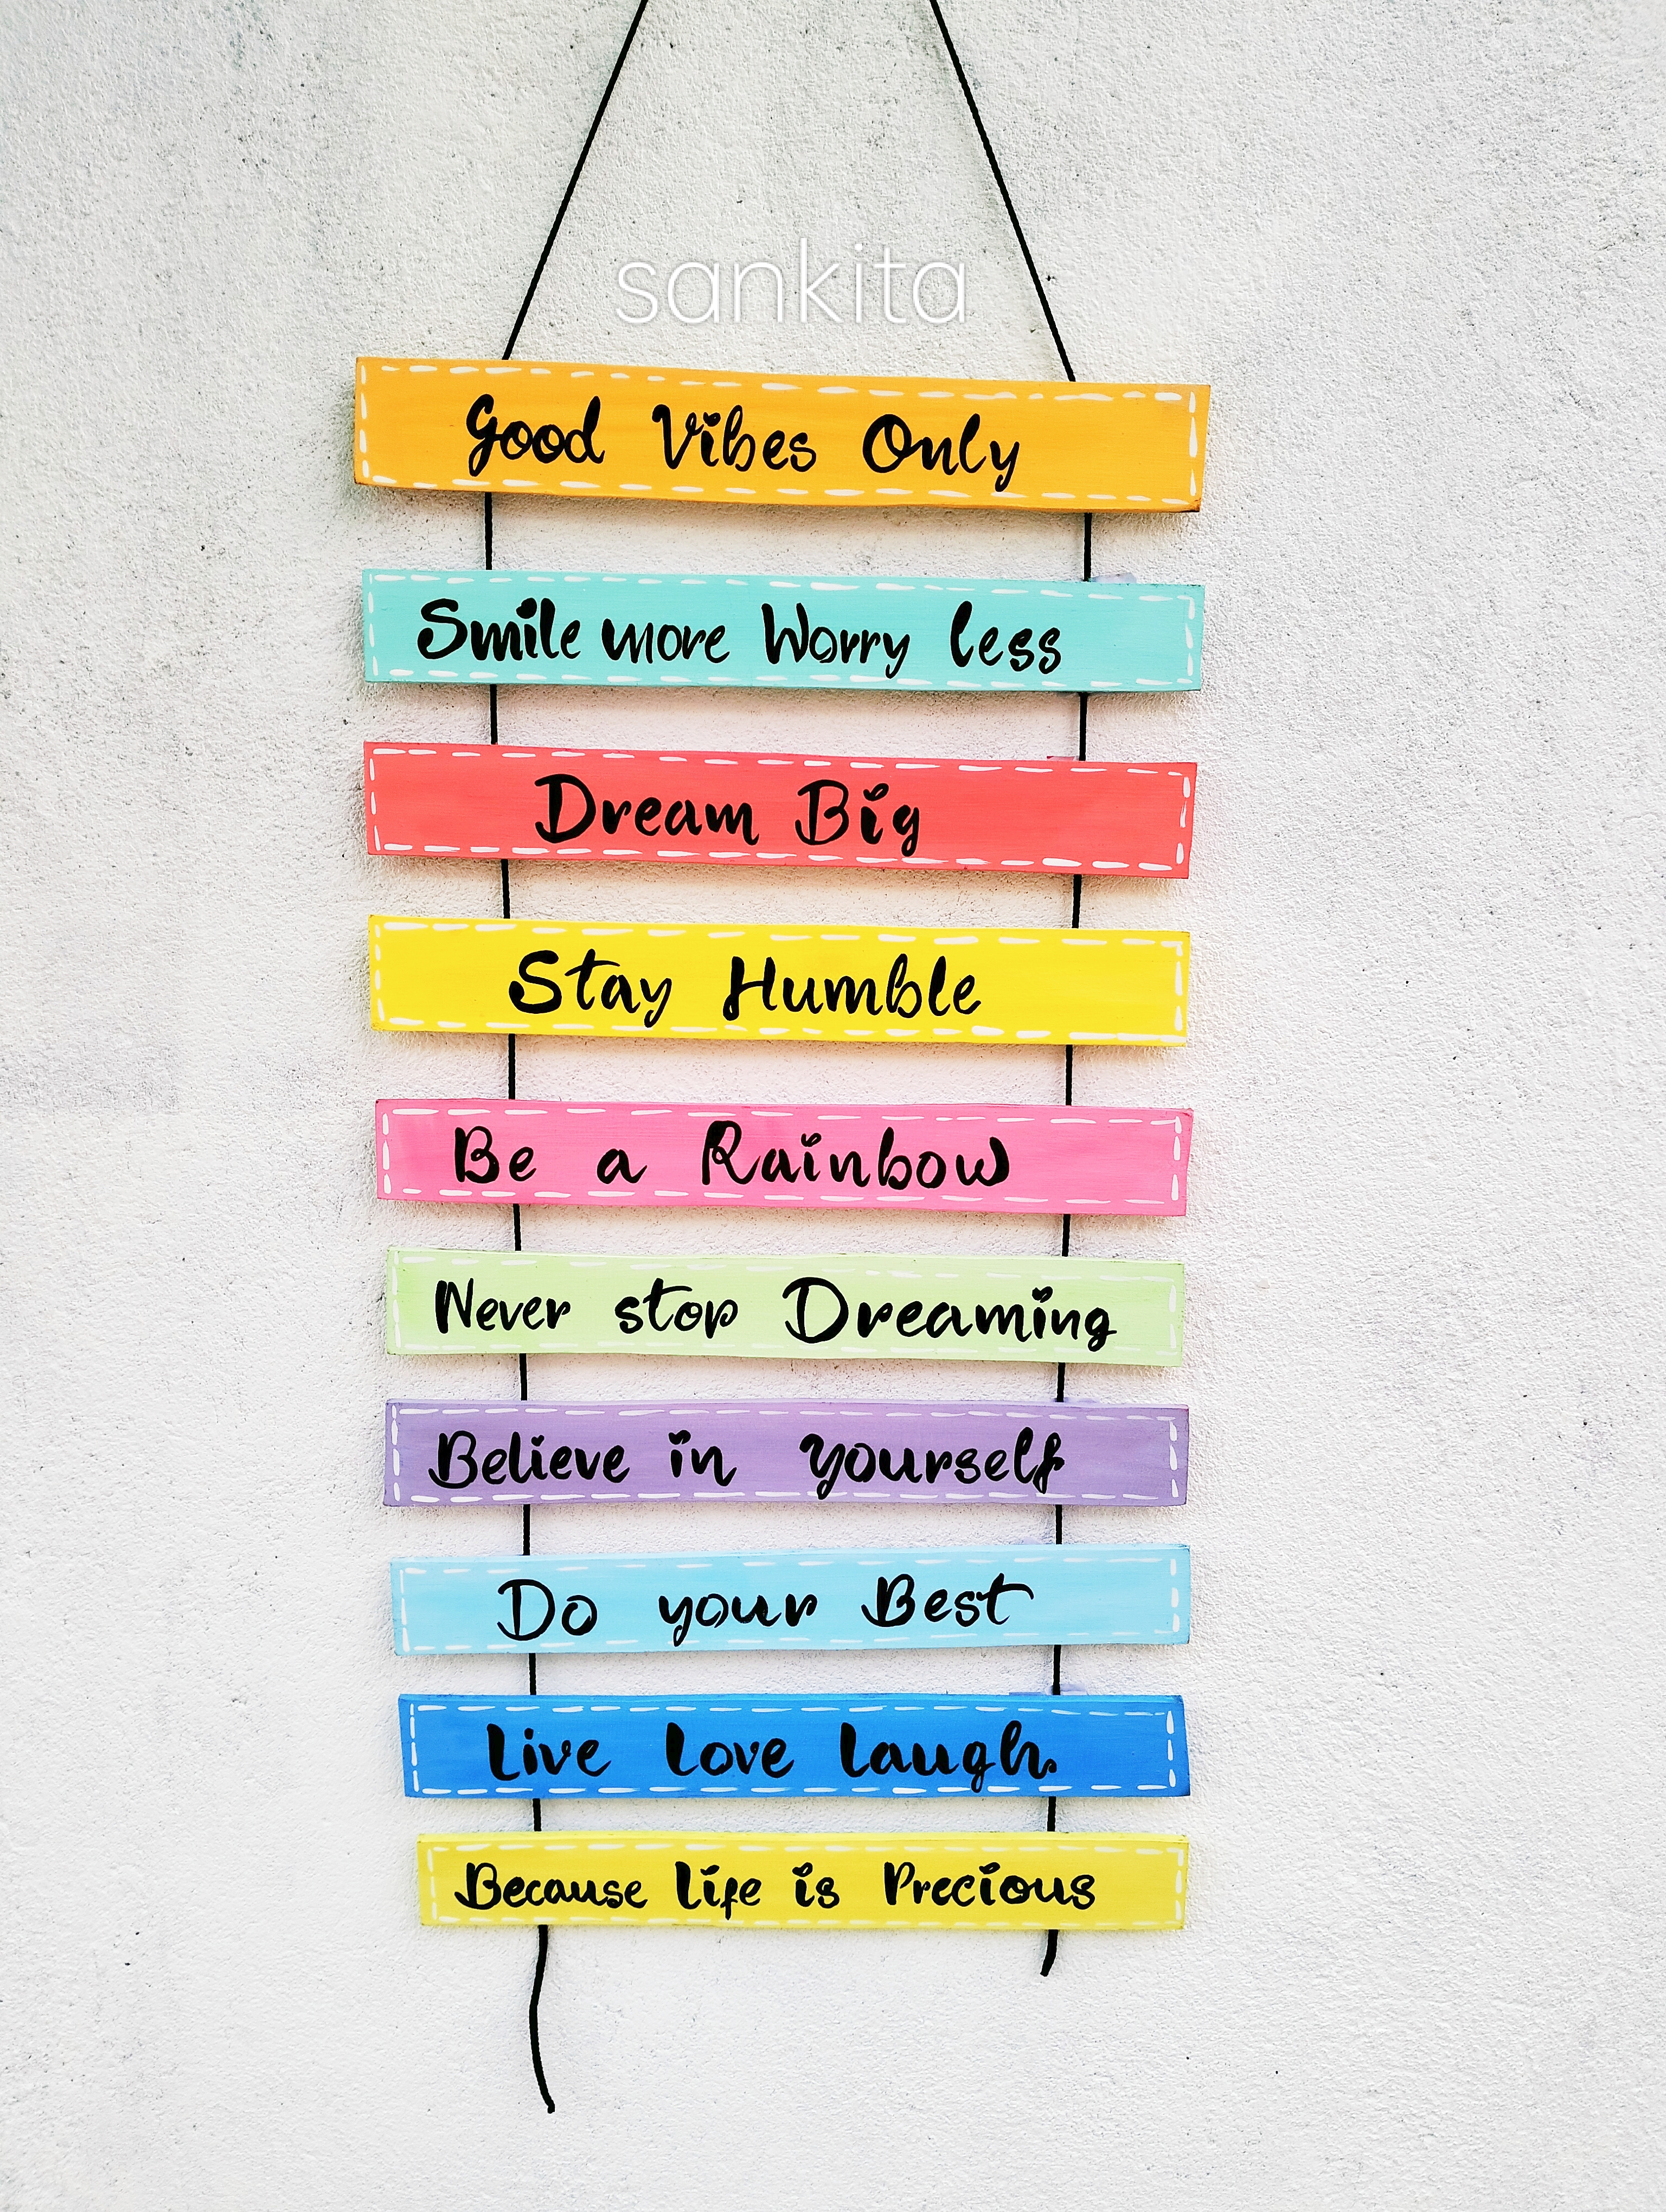 sankita
Good Vibes Only
Smile more Worry less
Dream Big
Stay Humble
Be a Rainbow
Never stop Dreaming
Believe in yourself
Do your Best
Live Love Laugh
Because Life is Precious